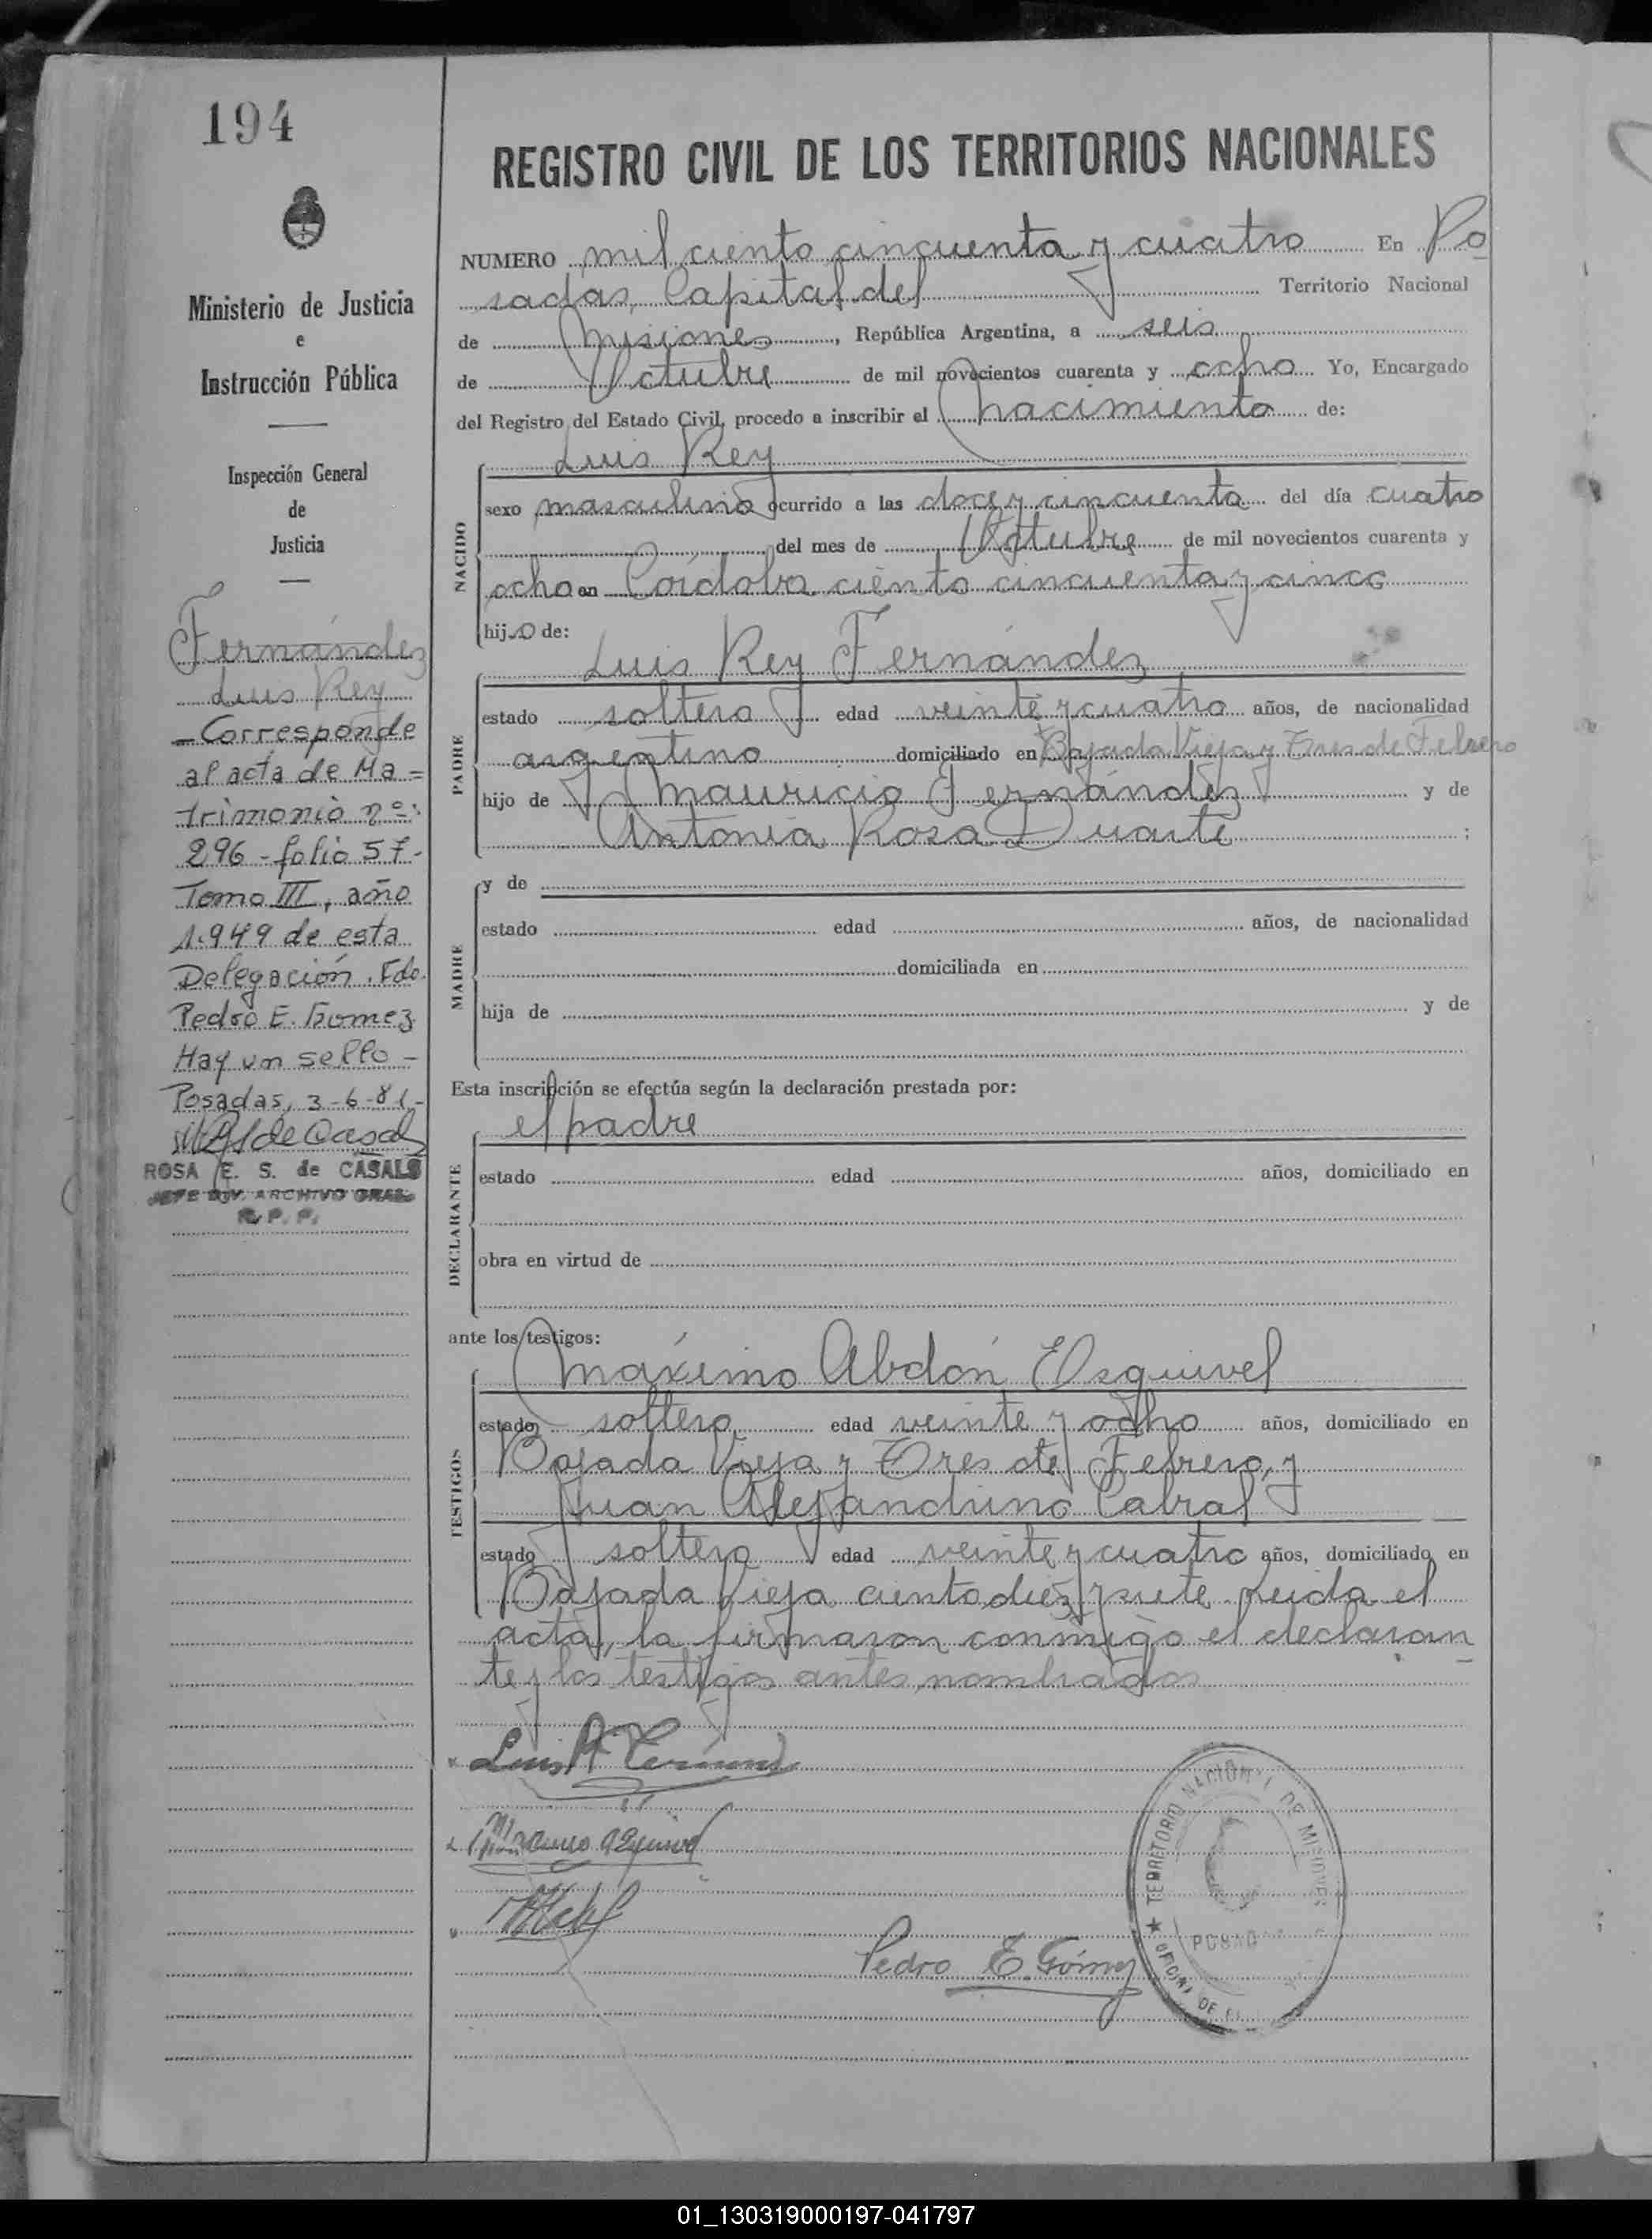 194
Ministerio de Justicia
e
Instrucción Pública
Inspección General
de
Justicia
Fernández
Luis Rey
- Corresponde
al acta de Ma =
trimonio nº:
296 - folio 57 -
Tomo III, año
1.949 de esta
Delegación. Fdo.
Pedro E. Gomez
Hay un sello -
Posadas, 3-6-81 -
ROSA E. S. de CASALS
JEFE DIV. ARCHIVO GRAL.
R. P. P.
REGISTRO CIVIL DE LOS TERRITORIOS NACIONALES
NUMERO mil ciento cincuenta y cuatro En Po
sadas, Capital del Territorio Nacional
de Misiones, República Argentina, a seis
de Octubre de mil novecientos cuarenta y ocho Yo, Encargado
del Registro del Estado Civil, procedo a inscribir el nacimiento de:
NACIDO
Luis Rey
sexo masculino ocurrido a las doce y cincuenta del día cuatro
del mes de Octubre de mil novecientos cuarenta y
ocho en Córdoba ciento cincuenta y cinco
hijo de:
PADRE
Luis Rey Fernández
estado soltero edad veinte y cuatro años, de nacionalidad
argentino domiciliado en Bajada Vieja y Tres de Febrero
hijo de Mauricio Fernández y de
Antonia Rosa Duarte ;
MADRE
y de
estado edad años, de nacionalidad
domiciliada en
hija de y de
Esta inscripción se efectúa según la declaración prestada por:
DECLARANTE
el padre
estado edad años, domiciliado en
obra en virtud de
ante los testigos:
TESTIGOS
Máximo Abdón Esquivel
estado soltero edad veinte y ocho años, domiciliado en
Bajada Vieja y Tres de Febrero, y
Juan Alejandrino Cabral
estado soltero edad veinte y cuatro años, domiciliado en
Bajada Vieja ciento diez y siete. Leida el
acta, la firmaron conmigo el declaran
te y los testigos antes nombrados
Luis R Fernand
Maximo A Esquivel
Pedro E. Gómez
TERRITORIO NACIONAL DE MISIONES
POSAD
OFICINA DE
01_130319000197-041797